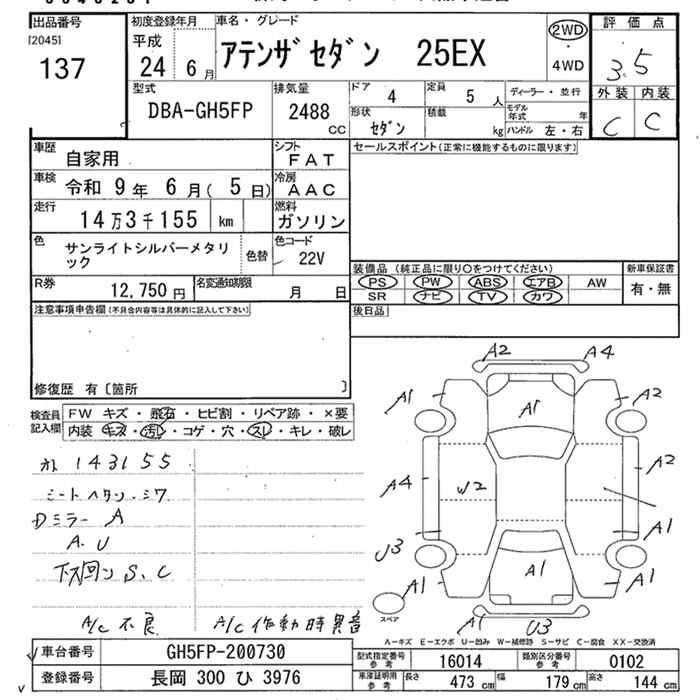 出品番号
[2045]
137
初度登録年月
平成
24 6月
車名・グレード
アテンザセダン 25EX
2WD
・
4WD
評価点
3.5
外装 内装
C C
型式
DBA-GH5FP
排気量
2488
CC
ドア
4
定員
5 人
形状
セダン
積載
kg
ディーラー・並行
モデル年式 年
ハンドル 左・右
車歴 自家用
シフト FAT
車検 令和 9年 6月( 5日)
冷房 AAC
走行 14万3千155 km
燃料 ガソリン
色 サンライトシルバーメタリック
色替
色コード 22V
R券 12,750円
名変通知期限 月 日
セールスポイント(正常に機能するものに限ります)
装備品 (純正品に限り○をつけてください)
PS PW ABS エアB AW
SR ナビ TV カワ
新車保証書
有・無
後日品
注意事項申告欄(不具合内容等は具体的に記入して下さい)
修復歴 有〔箇所 〕
検査員記入欄
FW キズ・飛石・ヒビ割・リペア跡・×要
内装 キズ・汚レ・コゲ・穴・スレ・キレ・破レ
143155
シートヘタリ・シワ
Dミラー A
A.U
下回り S、C
A/C 不良 A/C 作動時異音
A2 A4
A1 A1 A2
A4 W2 A2
U3 A1
A1 A1 A1
スペア
A1 U3
A-キズ E-エクボ U-凹み W-補修跡 S-サビ C-腐食 XX-交換済
車台番号 GH5FP-200730
登録番号 長岡 300 ひ 3976
型式指定番号 参考 16014
類別区分番号 参考 0102
車庫証明用 参考
長さ 473 cm 幅 179 cm 高さ 144 cm